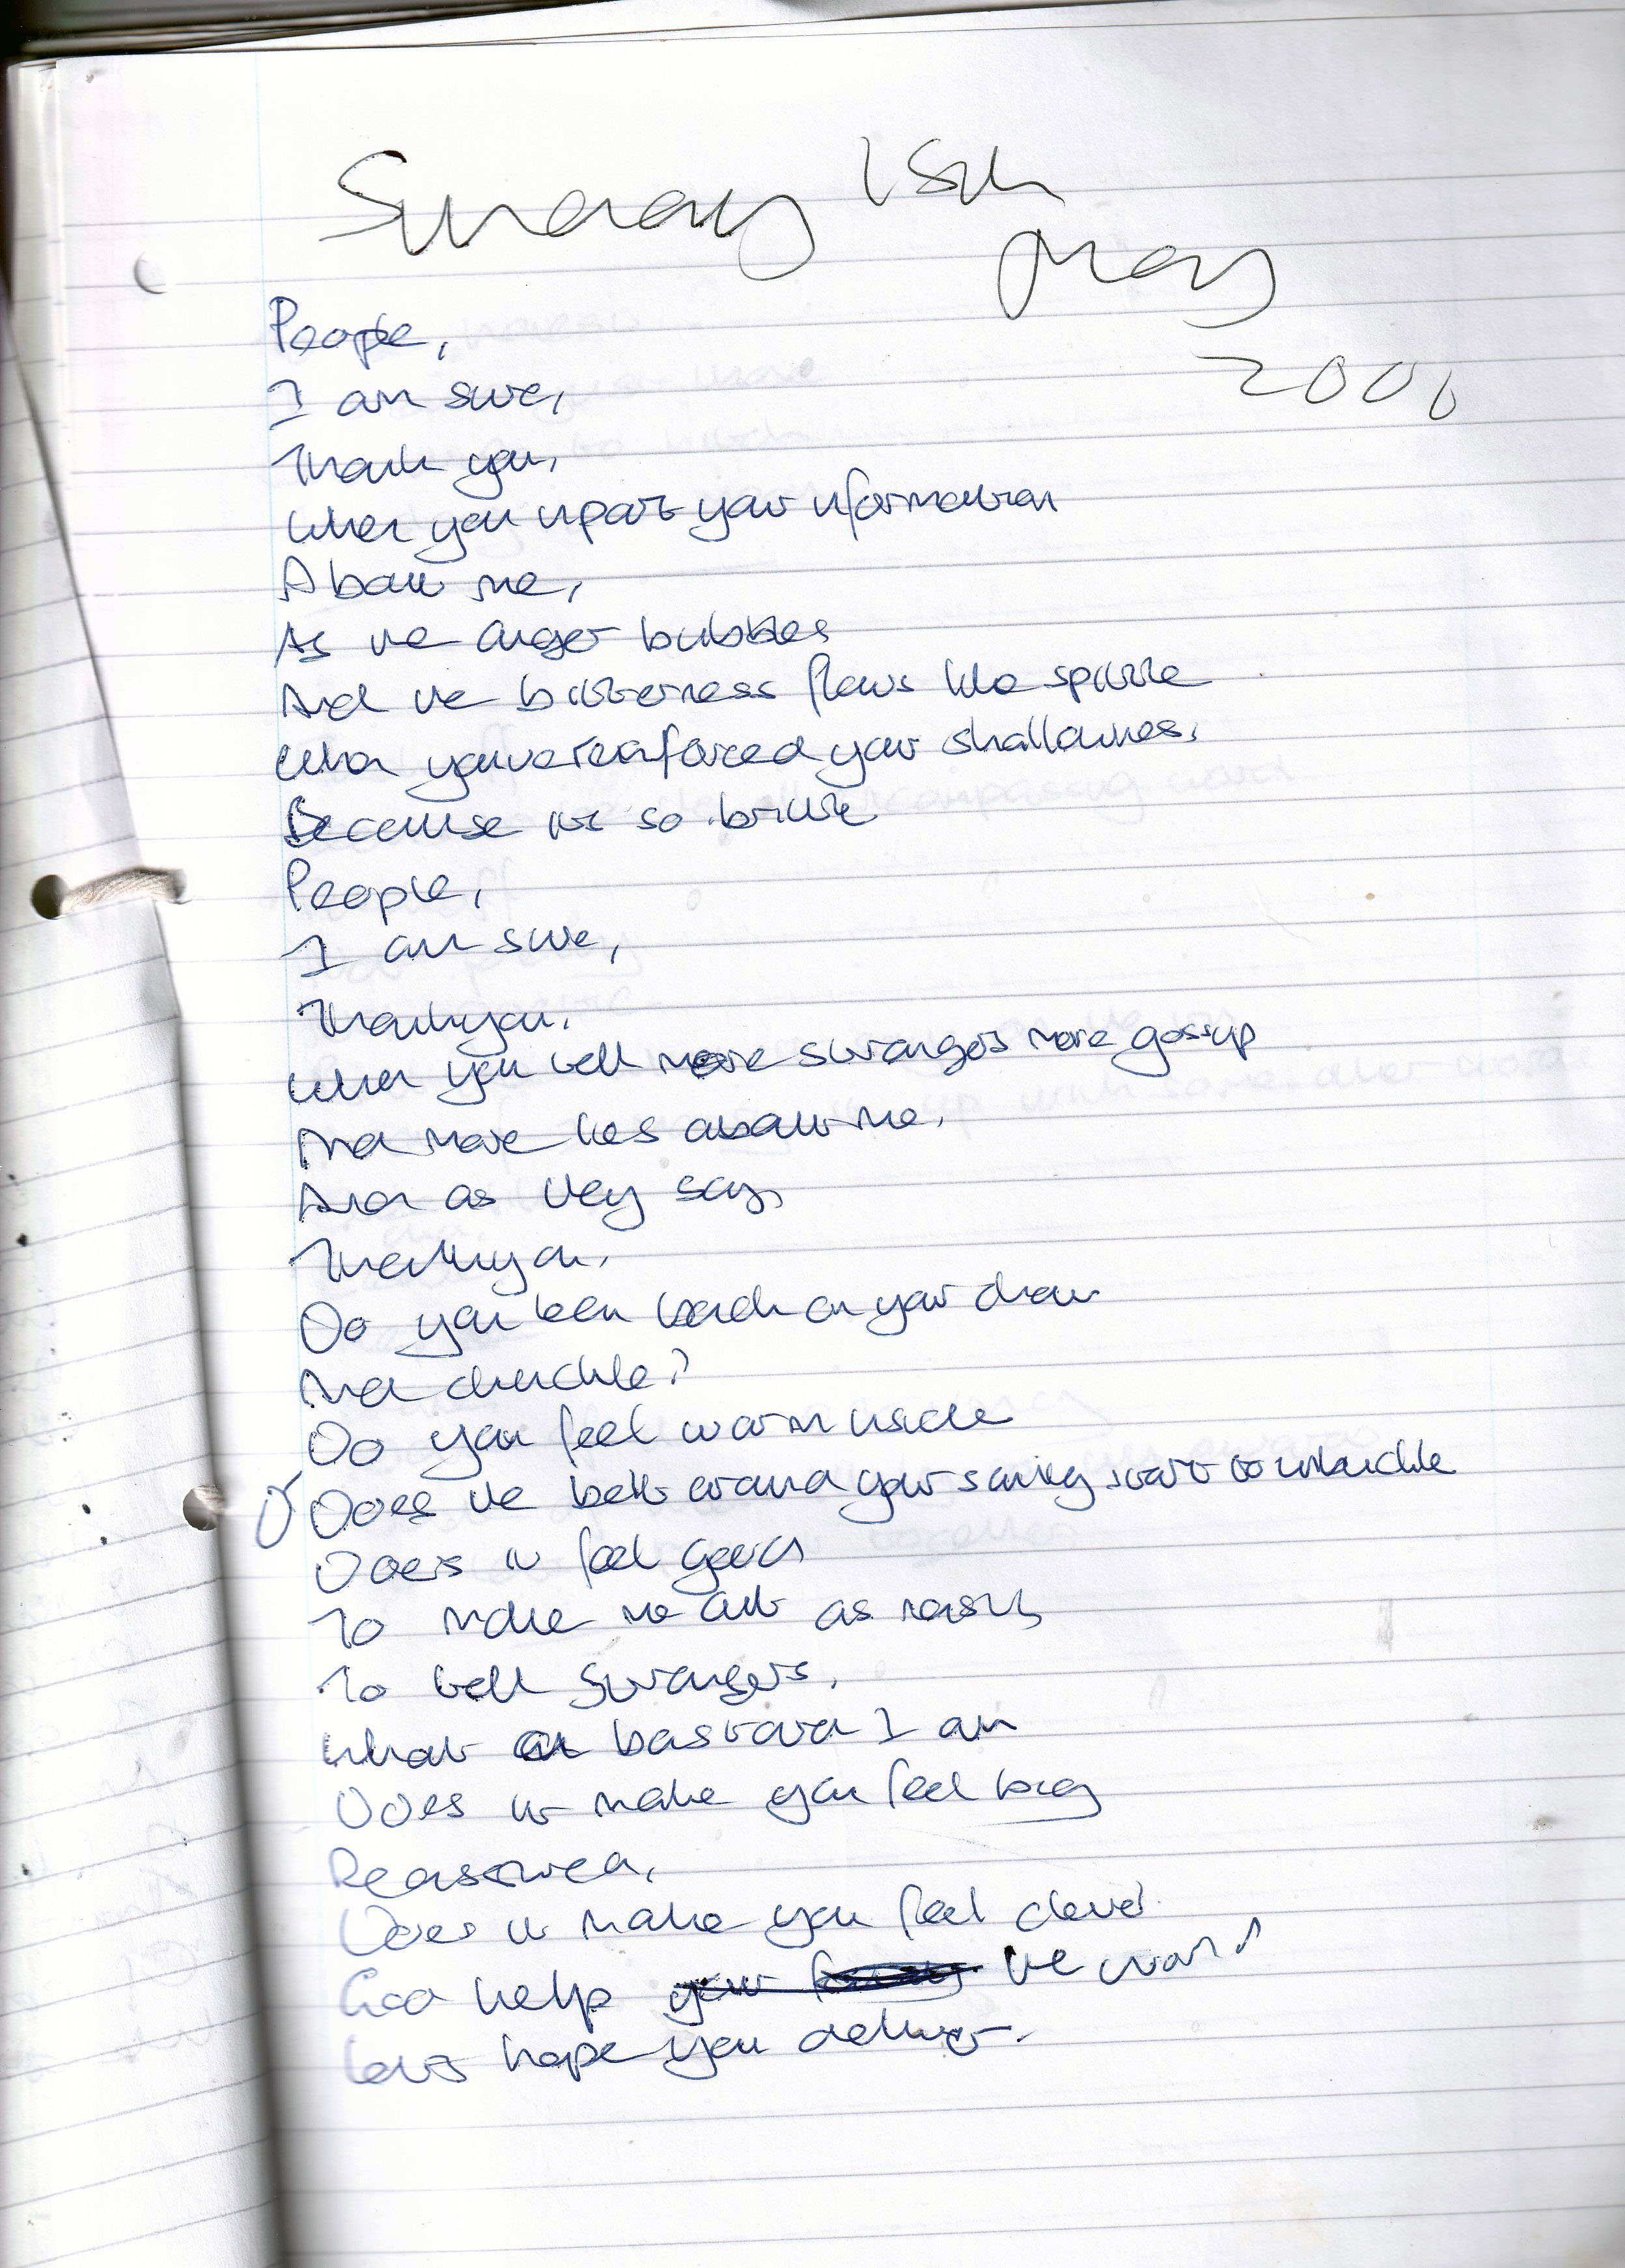 Sunday 15th
May
2000
People,
I am sure,
Thank you,
When you impart your information
About me,
As the anger bubbles
And the bitterness flows like spittle
When you've reinforced your shallowness,
Because its so brittle
People,
I am sure,
Thankyou,
When you tell more strangers more gossip
And more lies about me,
And as they say,
Thankyou,
Do you lean back on your chair
And chuckle?
Do you feel warm inside
Or Does the belt around your swing start to unbuckle
Does it feel good
To make me out as nasty
To tell Strangers,
What a bastard I am
Does it make you feel big
Reassured,
Does it make you feel clever
God help the world
Lets hope you deliver.